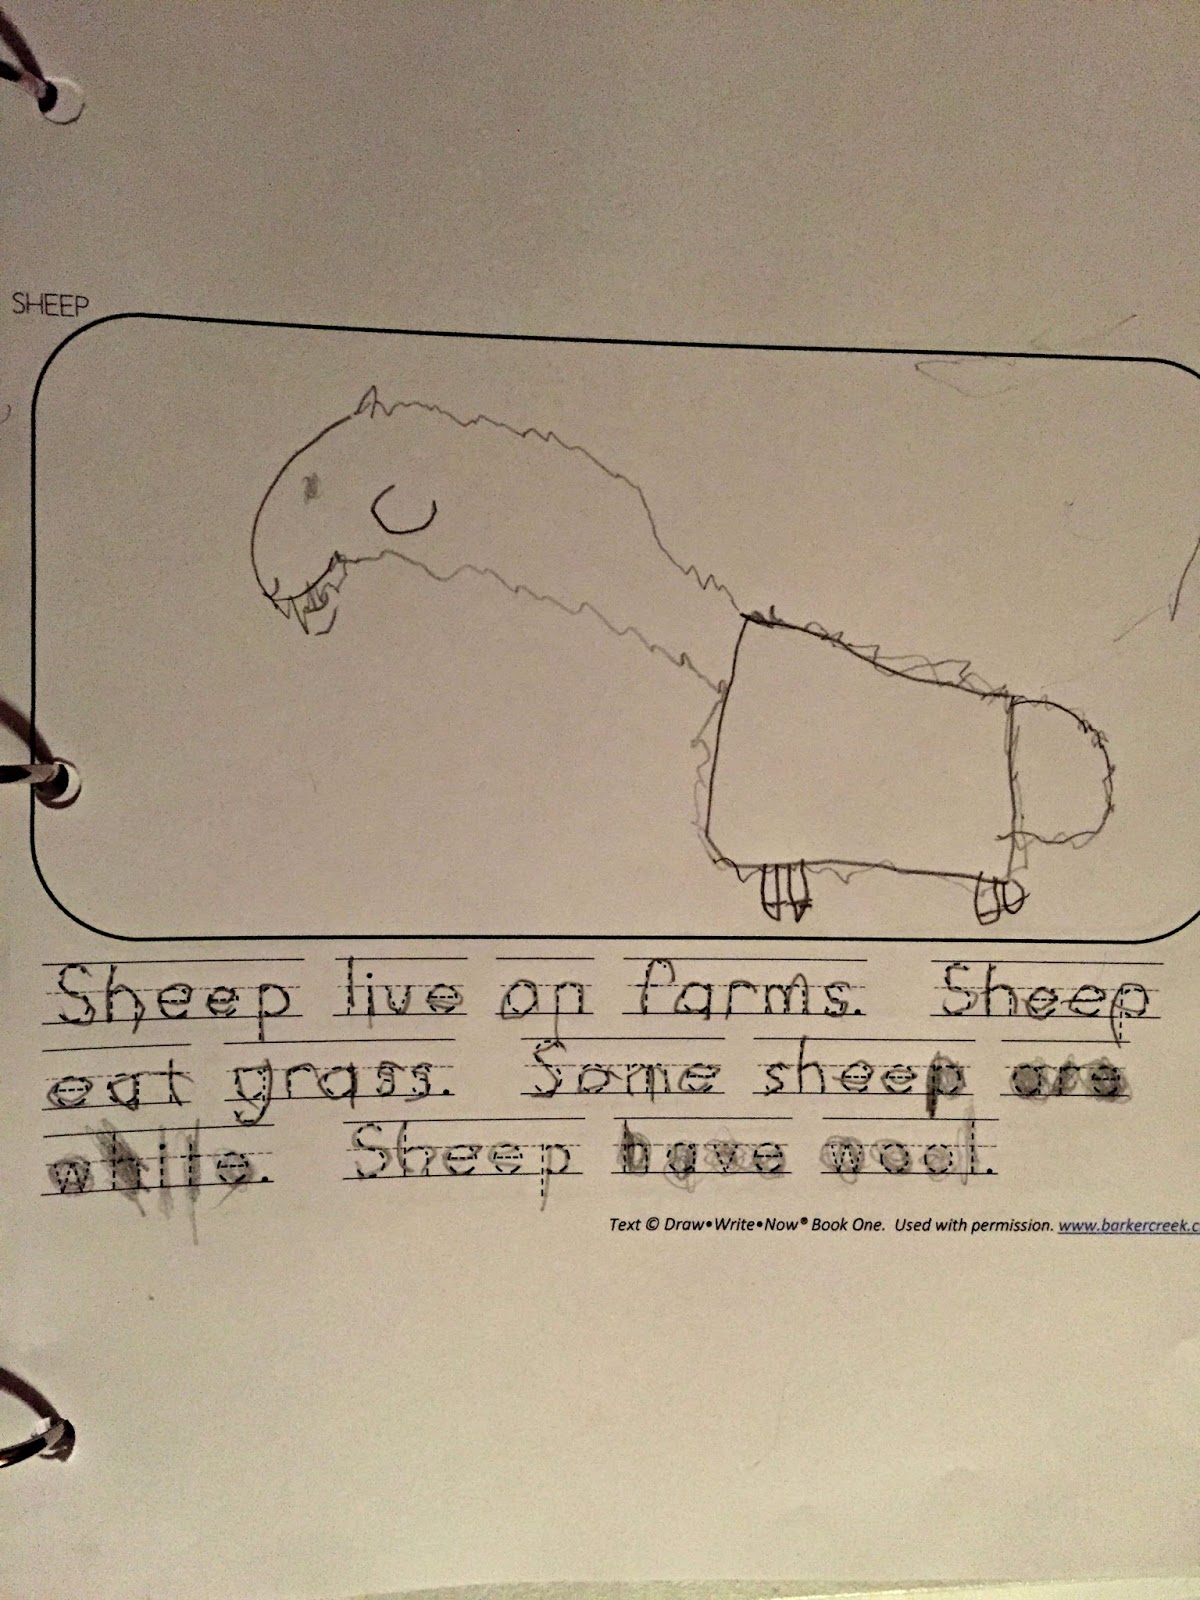 SHEEP
Sheep live on farms. Sheep
eat grass. Some sheep are
white. Sheep have wool.
Text © Draw•Write•Now® Book One. Used with permission. www.barkercreek.c